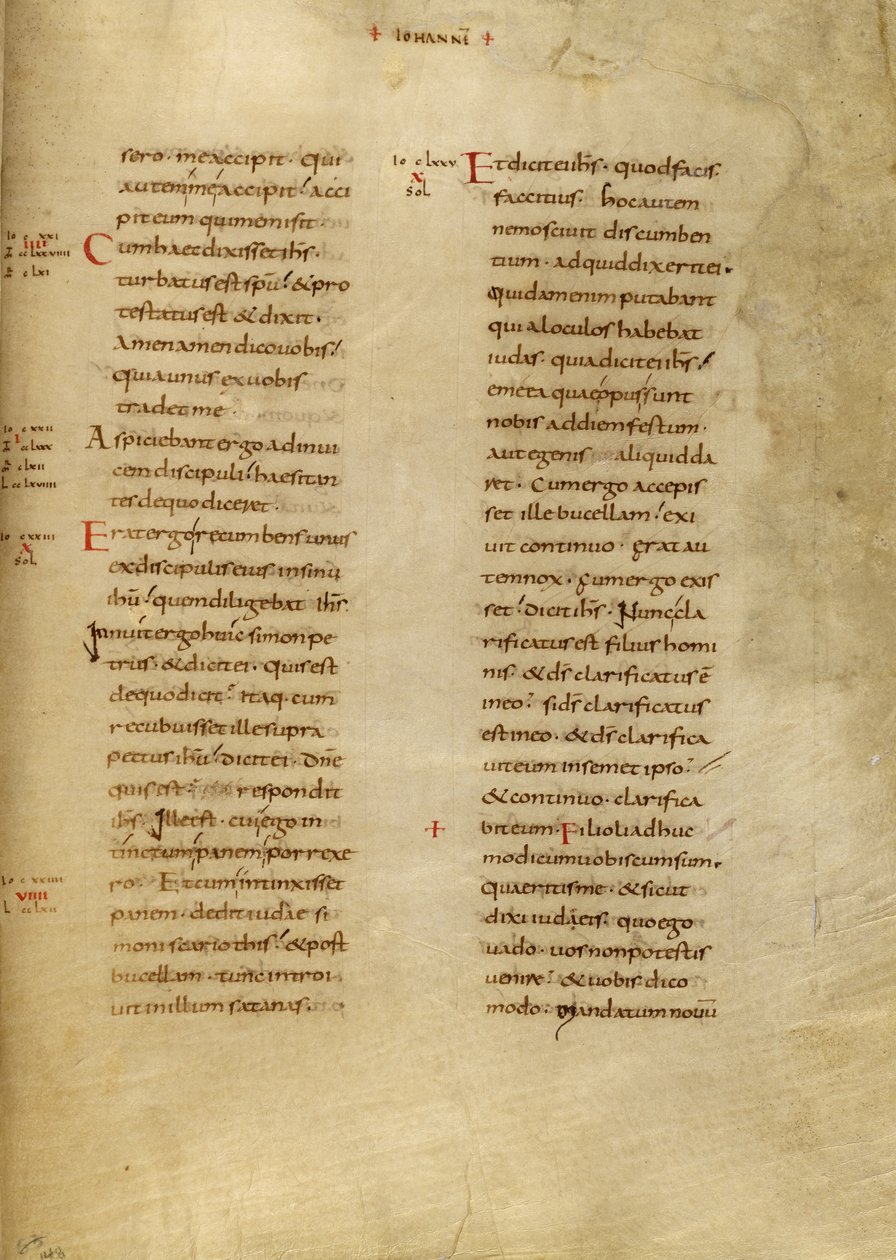 + IOHANNĒ +
sero · me accipit · Qui
autem me accipit · acci
pit eum qui me misit ·
Io c xxi
IIII
cc lxxviiii
c lxi
Cum haec dixisset ihs̄ ·
turbatus est spū · & pro
testatus est & dixit ·
Amen amen dico uobis ·
quia unus ex uobis
tradet me ·
Io c xxii
I
cc lxxx
c lxii
L cc lxviiii
Aspiciebant ergo ad inui
cem discipuli · haesitan
tes de quo diceret ·
Io c xxiii
X
SOL
Erat ergo recumbens unus
ex discipulis eius in sinu
ihū · quem diligebat ihs̄ ·
Innuit ergo huic simon pe
trus · & dicit ei · Quis est
de quo dicit · Itaq · cum
recubuisset ille supra
pectus ihū · dicit ei · Dn̄e
quis est · respondit
ihs̄ · Ille est · cui ego in
tinctum panem porrexe
ro · Et cum intinxisset
Io c xxiiii
VIIII
L cc lxii
panem · dedit iudae si
moni scariothis · & post
bucellam · tunc introi
uit in illum satanas ·
Io c lxxv
X
SOL
Et dicit ei ihs̄ · quod facis
fac citius · hoc autem
nemo sciuit discumben
tium · ad quid dixerit ei ·
Quidam enim putabant
quia loculos habebat
iudas · quia dicit ei ihs̄ ·
eme ea quae opus sunt
nobis ad diem festum ·
aut egenis aliquid da
ret · Cum ergo accepis
set ille bucellam · exi
uit continuo · Erat au
tem nox · Cum ergo exis
set · dicit ihs̄ · Nunc cla
rificatus est filius homi
nis · & ds̄ clarificatus ē
in eo · si ds̄ clarificatus
est in eo · & ds̄ clarifica
uit eum in semet ipso ·
& continuo · clarifica
+
bit eum · Filioli adhuc
modicum uobiscum sum ·
Quaeritis me · & sicut
dixi iudaeis · quo ego
uado · uos non potestis
uenire · & uobis dico
modo · Mandatum nouū